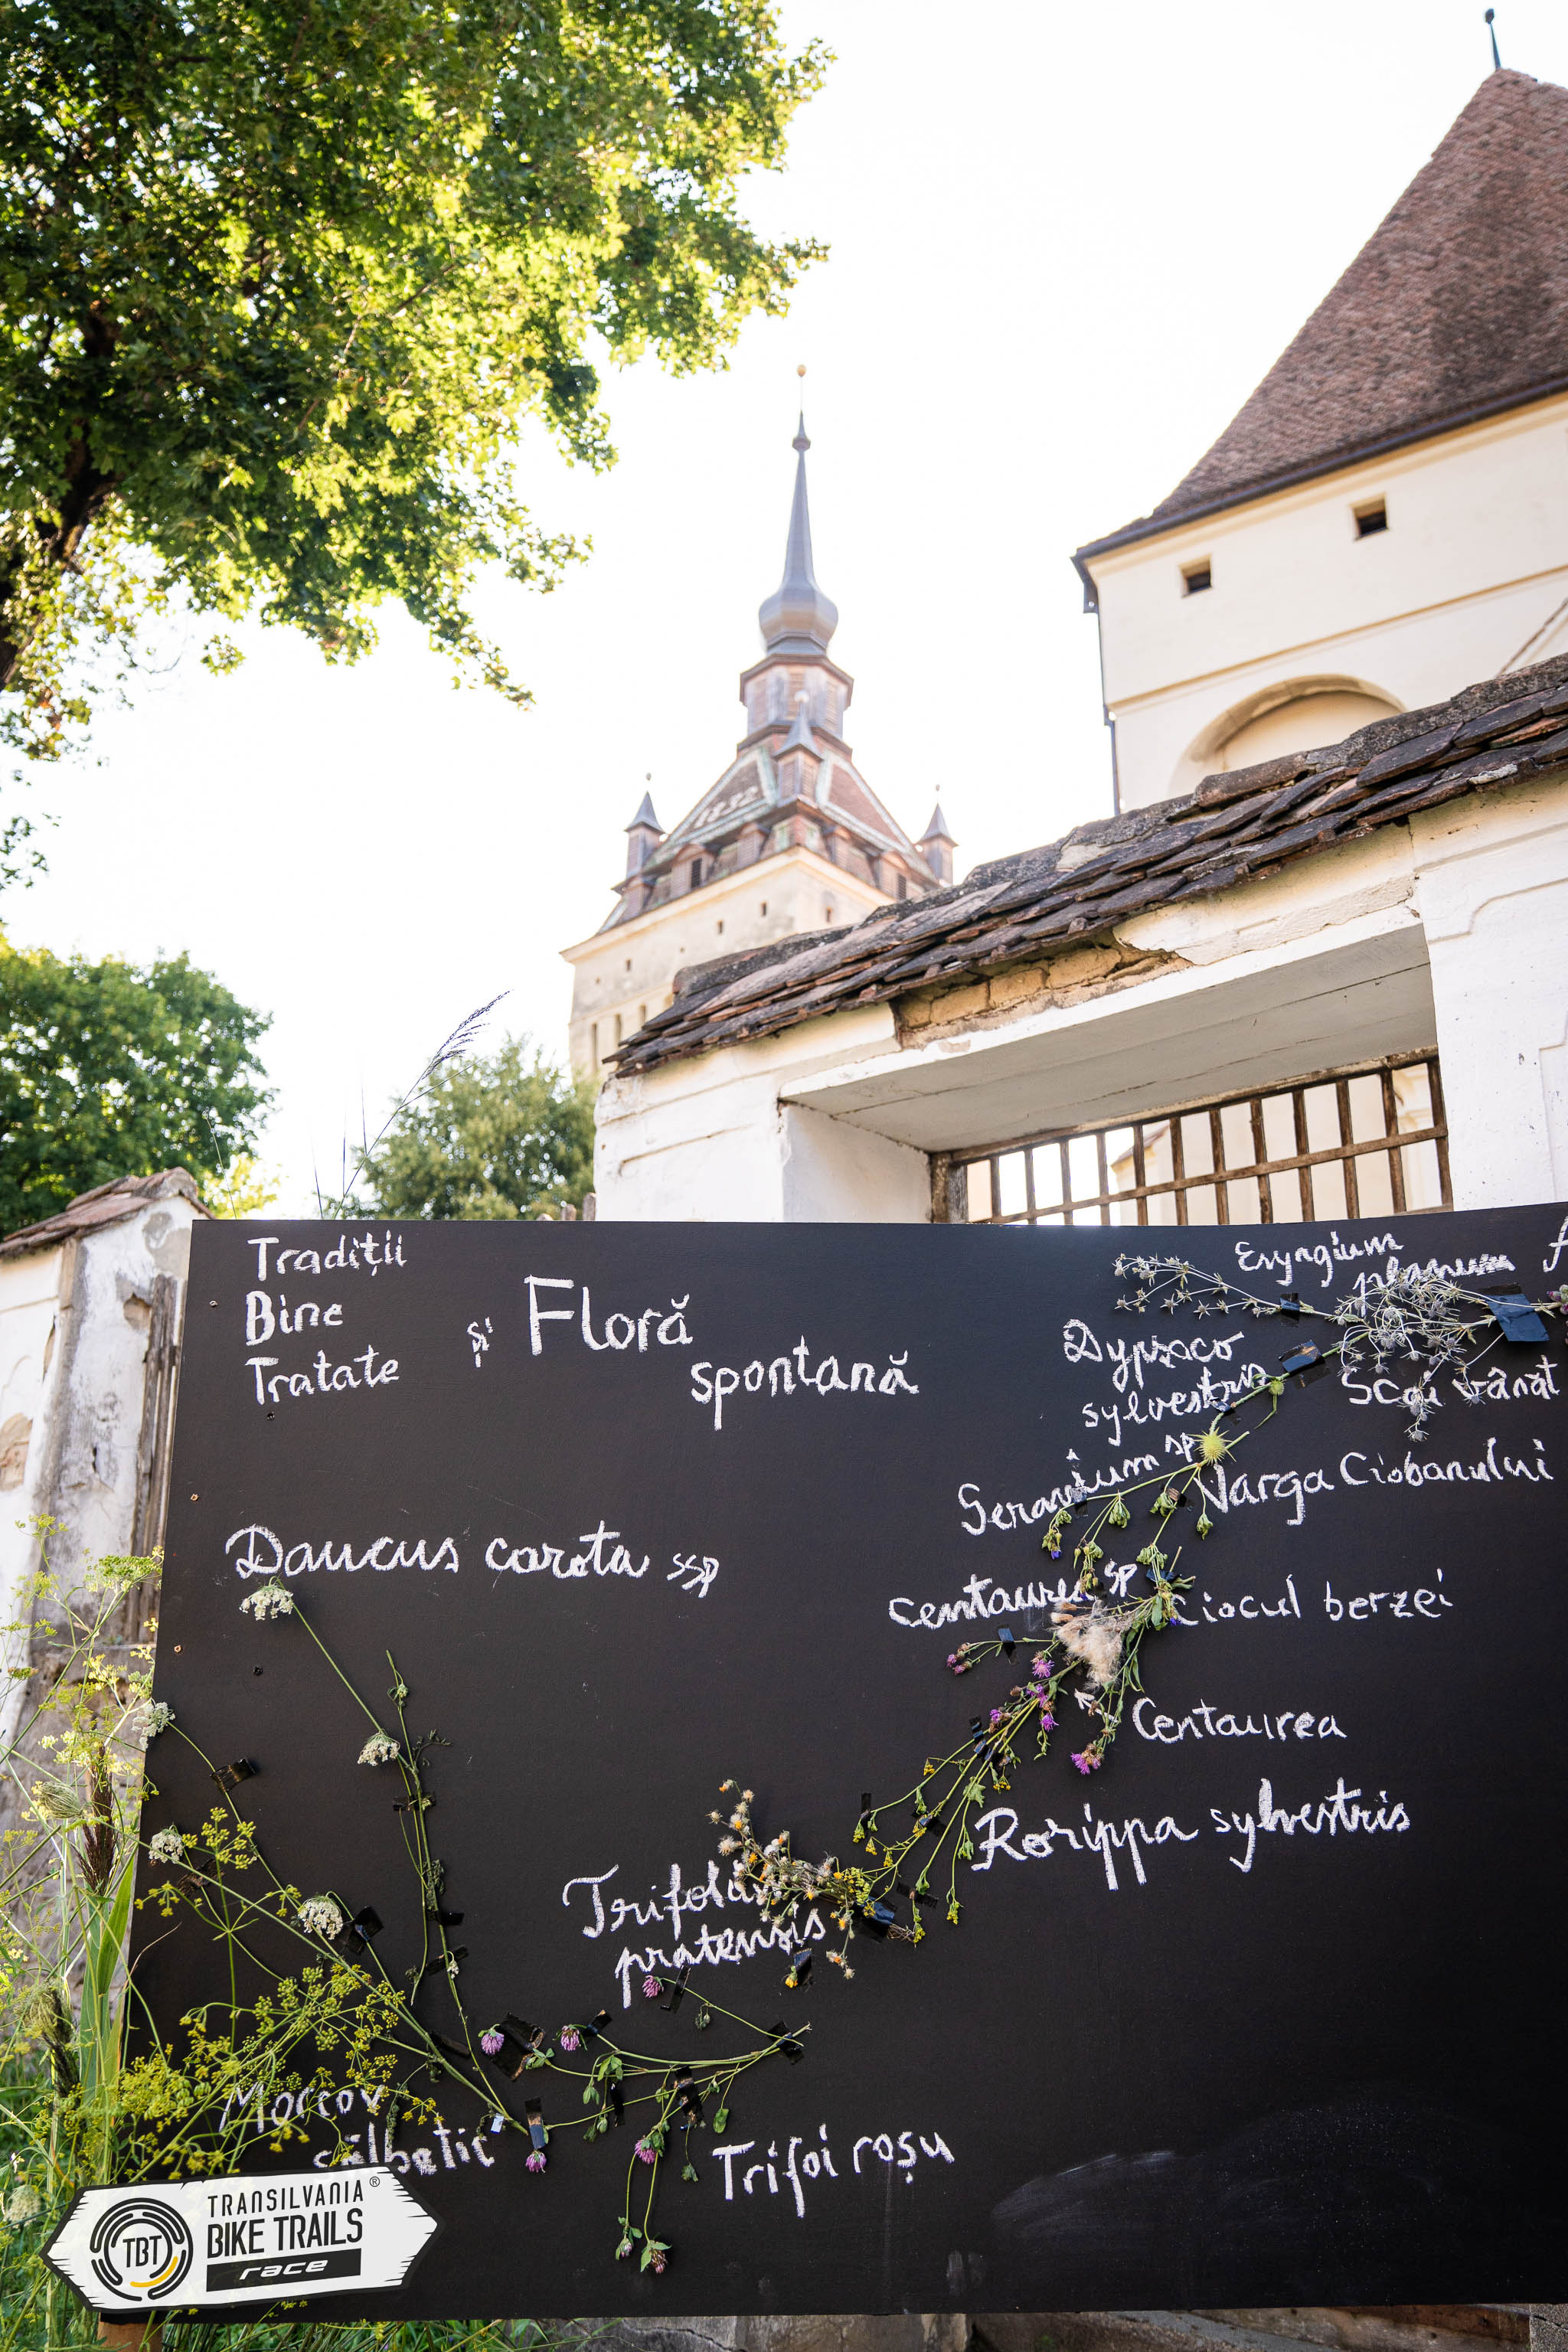 Tradiții
Bine
Tratate
și Floră
spontană
Eryngium
planum
Dypsaco
sylvestris
Scai vânăt
Geranium sp
Varga Ciobanului
Daucus carota ssp
centaurea sp
Ciocul berzei
Centaurea
Rorippa sylvestris
Trifolium
pratensis
Morcov
sălbatic
Trifoi roșu
TRANSILVANIA®
BIKE TRAILS
race
TBT